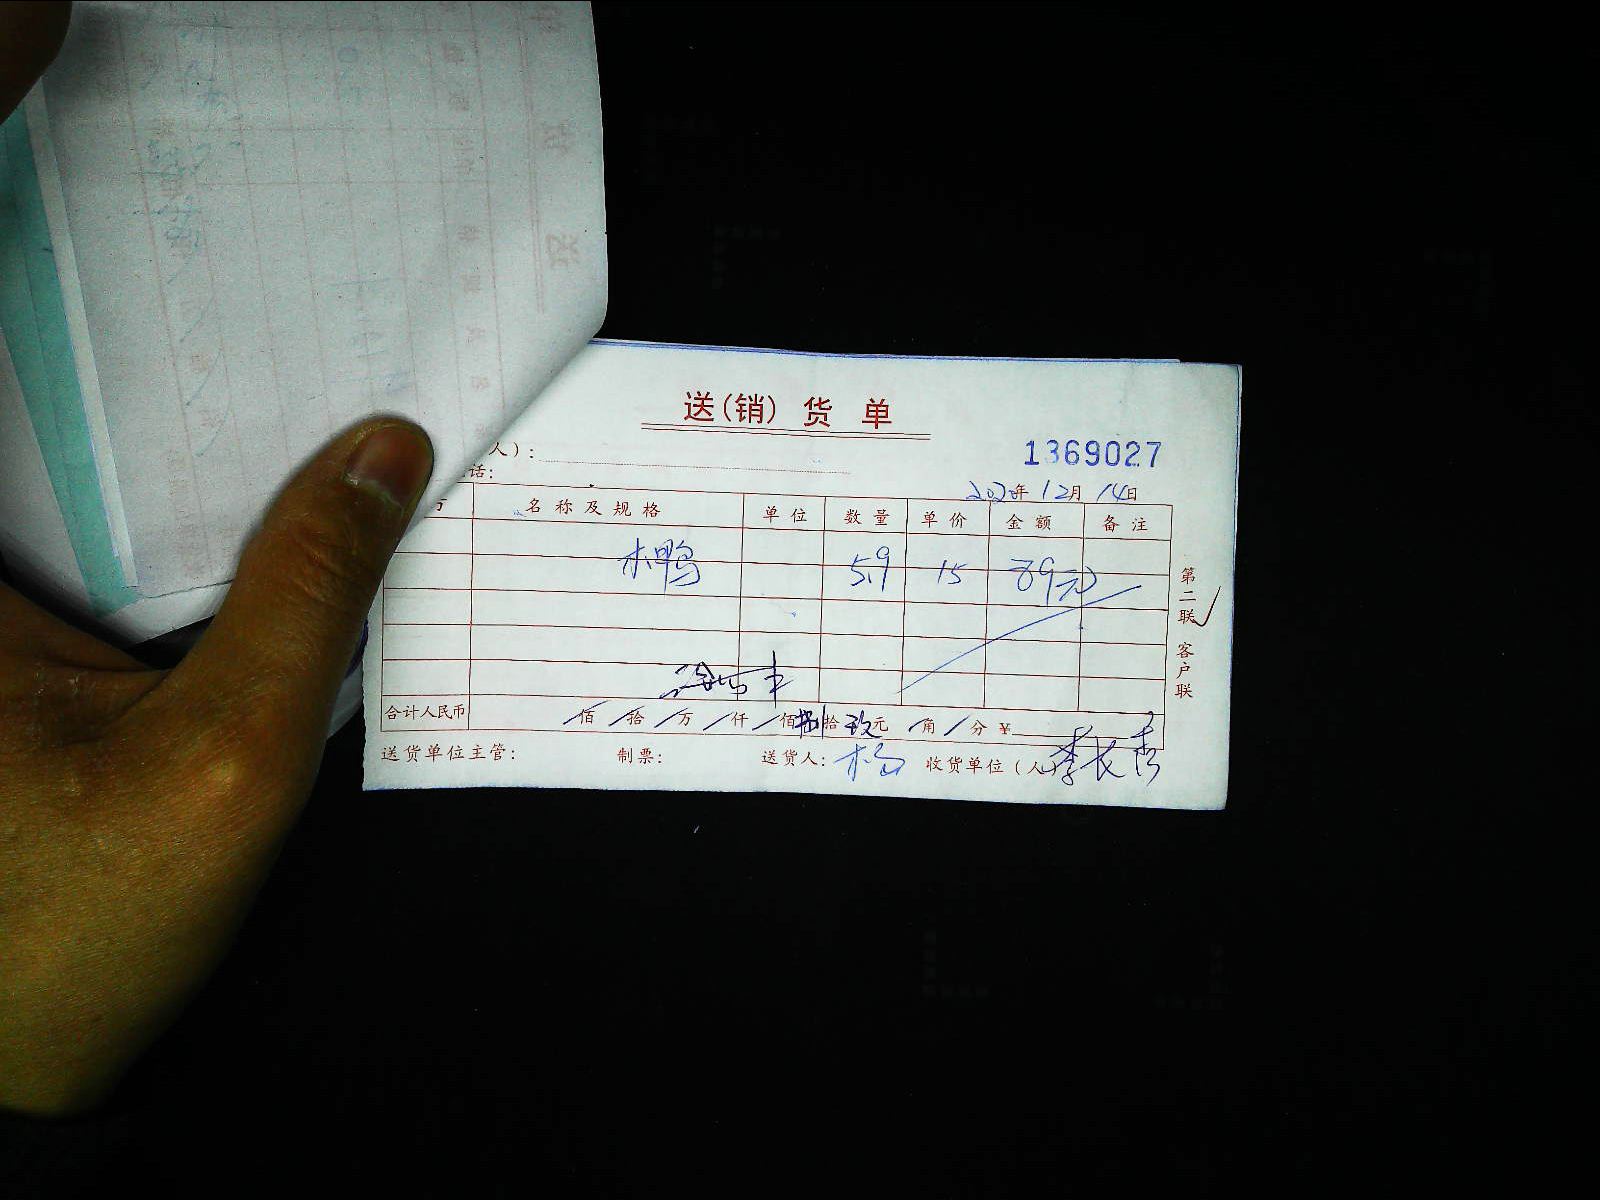 送(销) 货 单
人）:
1369027
话:
2020年 12月 14日
名 称 及 规 格 单 位 数 量 单 价 金 额 备 注
木鸭 5.9 15 89元
第二联 客户联
合计人民币 佰 拾 万 仟 佰 捌拾 玖元 角 分 ¥
送货单位主管: 制票: 送货人: 杨 收货单位（人） 李长秀